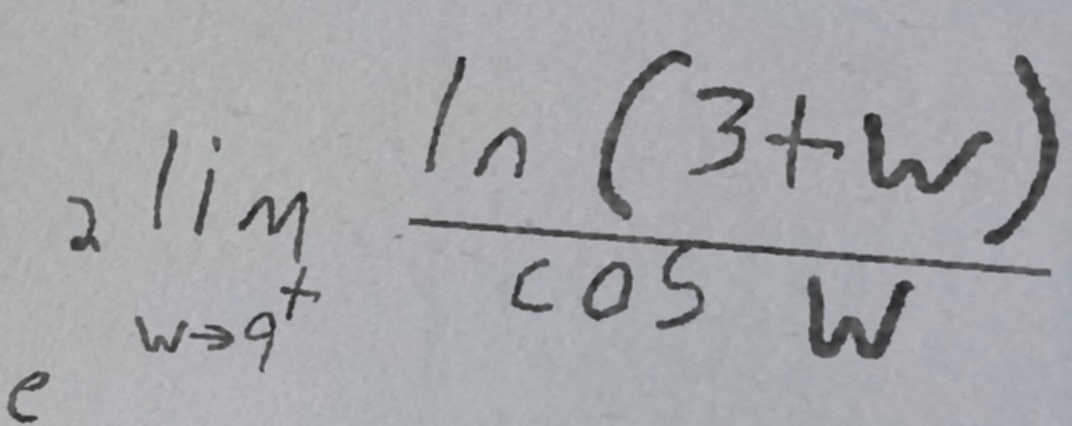 e^{2 \lim_{w \to 9^+} \frac{\ln(3+w)}{\cos w}}